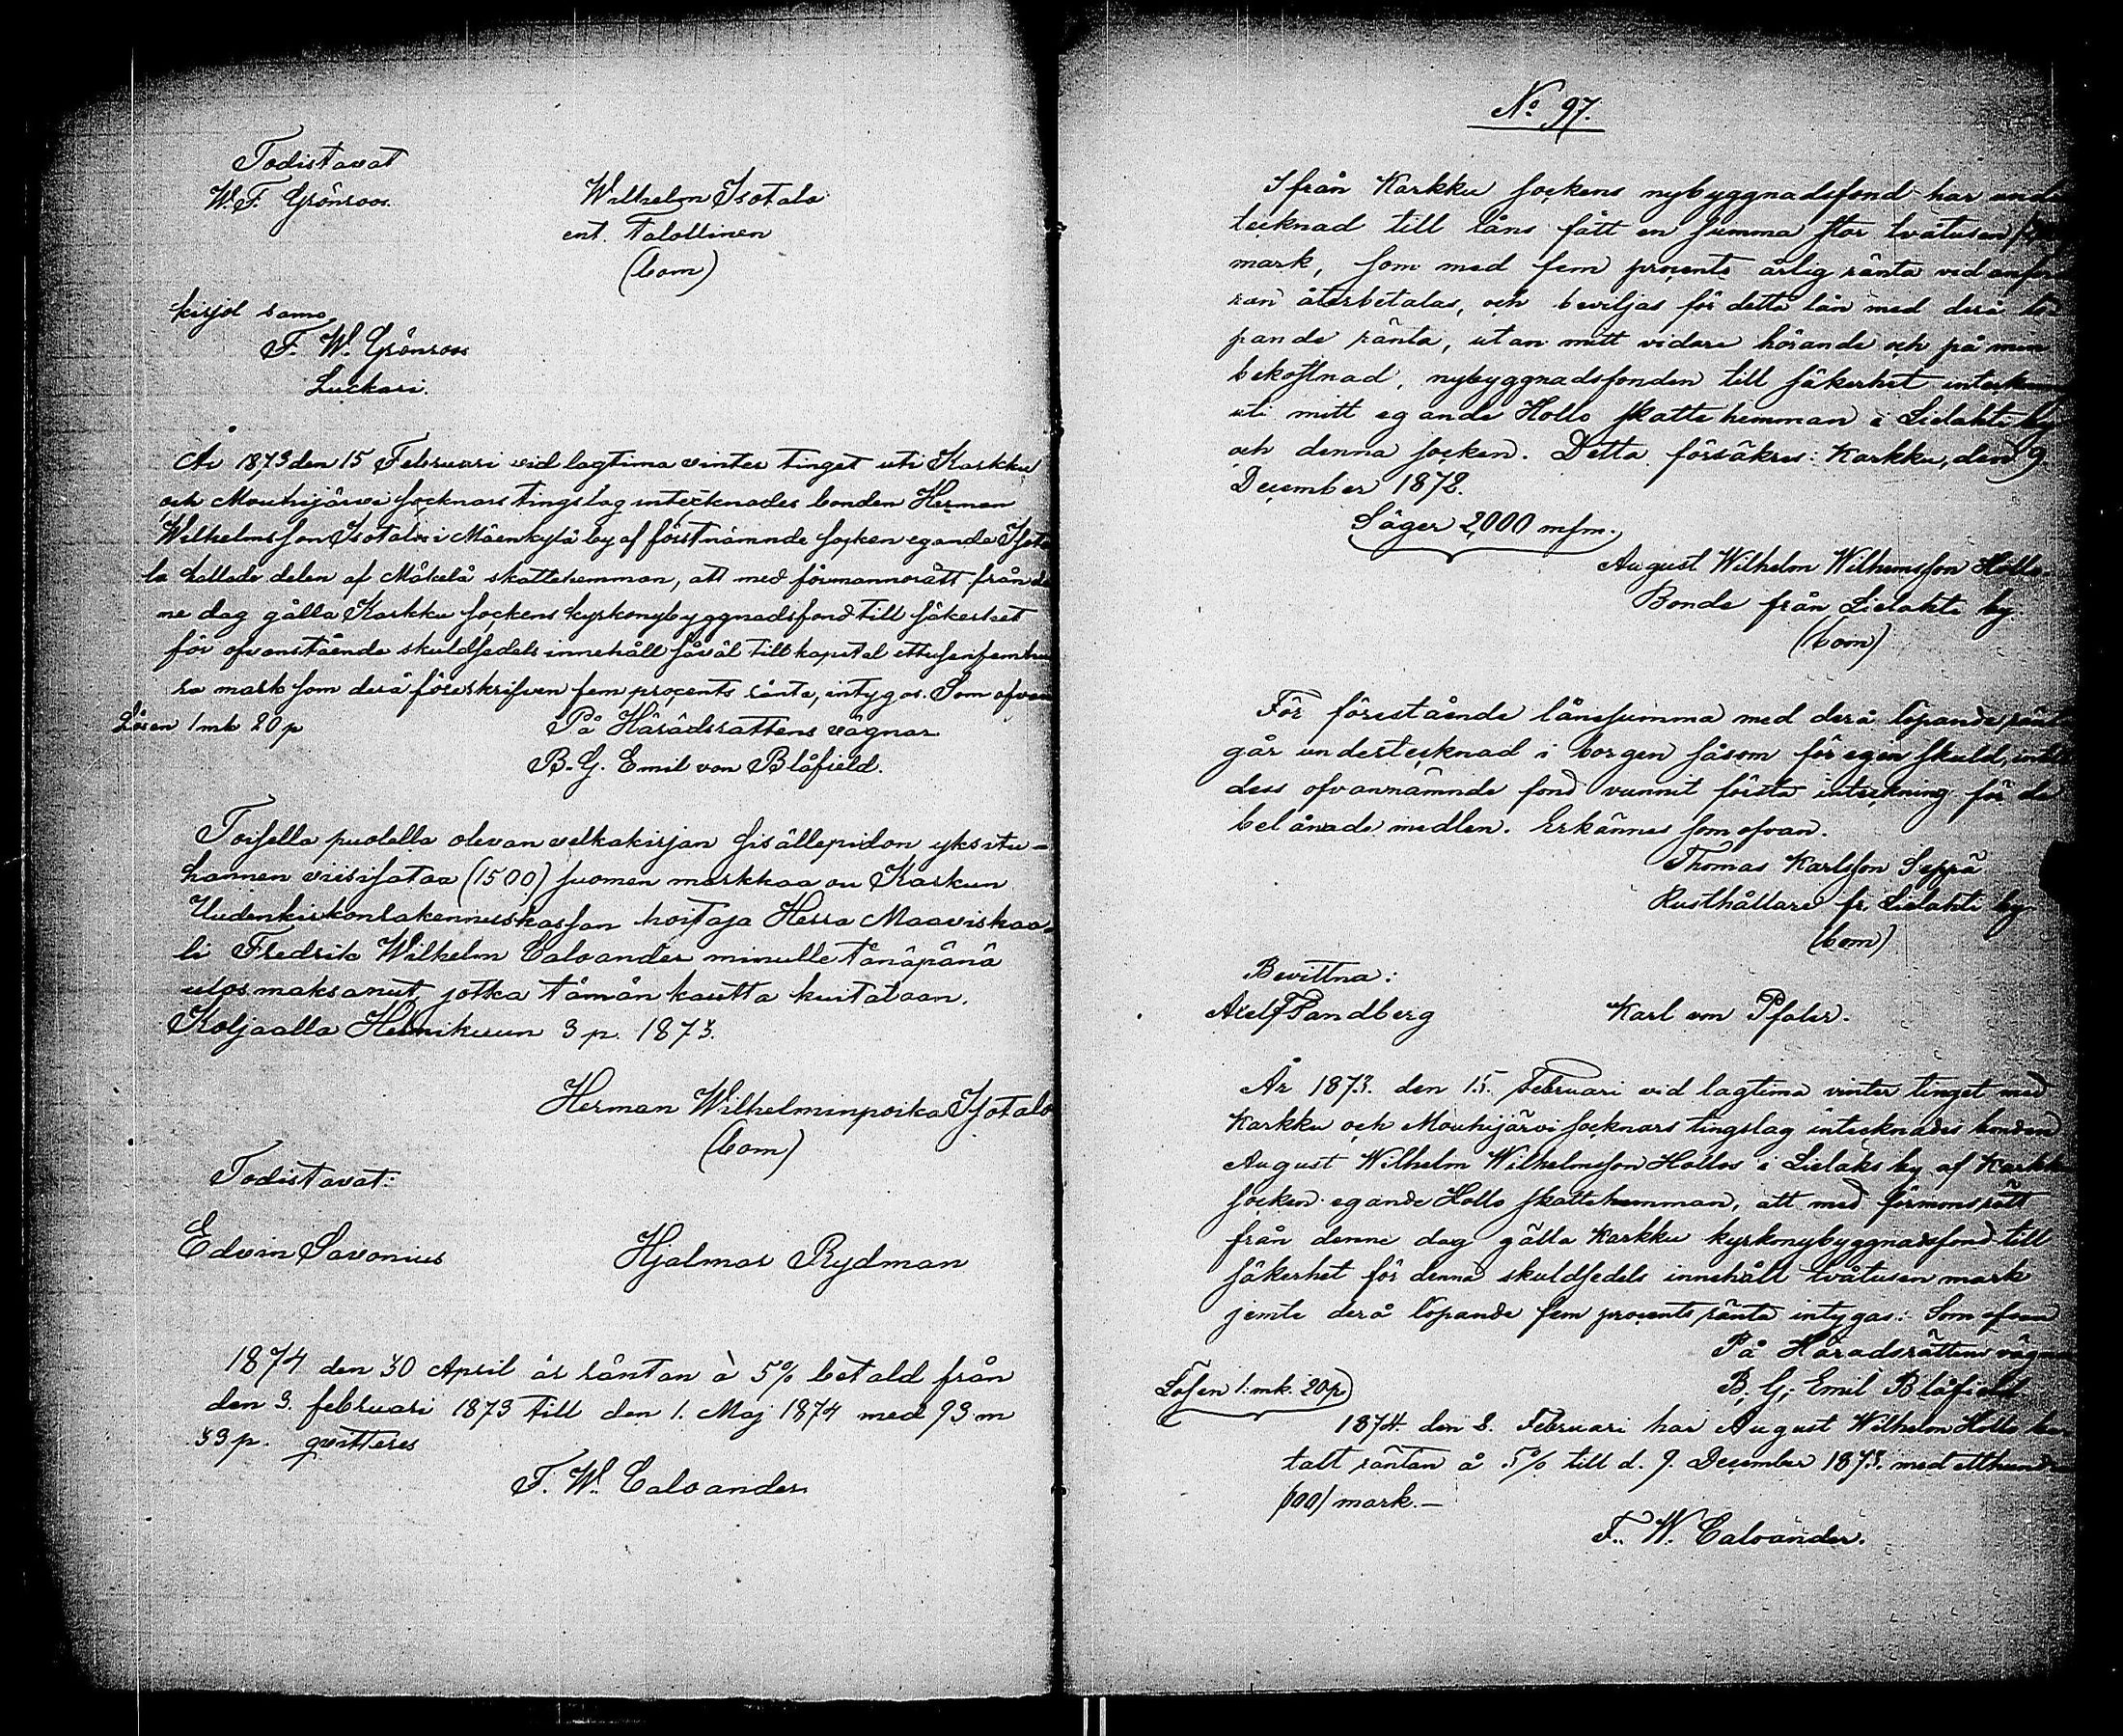 Todistavat
W. F. Grönroos.
Wilhelm Isotalo
ent. Talollinen
(bom)
kirjol samo
F. W. Grönroos
Luckari.
År 1873 den 15 Februari vid lagtima vinter tinget uti Karkku
och Mouhijärvi socknars tingslag intecknades bonden Herman
Wilhelmsson Isotalo i Mäenkylä by af förstnämnde socken egande Isota
la kallade delen af Mäkelä skattehemman, att med förmånsrätt från den
ne dag gälla Karkku sockens kyrkonybyggnadsfond till säkerhet
för ofvanstående skuldsedels innehåll såväl till kapital ettusenfemhun
ra mark som derå föreskrifven fem procents ränta, intygas. Som ofvan
Lösen 1 mk 20 p
På Häradsrättens vägnar
B. G. Emil von Blåfield.
Toisella puolella olevan velkakirjan sisällepidon yksitu-
hannen viisisataa (1500) suomen markkaa on Karkun
Uudenkirkonrakennuskassan hoitaja Herra Maaviskaa-
li Fredrik Wilhelm Caloander minulle tänäpänä
ulosmaksanut, jotka tämän kautta kuitataan.
Koljaalla Helmikuun 3 p. 1873.
Herman Wilhelminpoika Isotalo
(bom)
Todistavat:
Edvin Savonius
Hjalmar Rydman
1874 den 30 April är räntan à 5% betald från
den 3. februari 1873 till den 1. Maj 1874 med 93 m
33 p. qvitteres
F. W. Caloander.
No 97.
Ifrån Karkku sockens nybyggnadsfond har under
tecknad till låns fått en summa stor tvåtusen
mark, som med fem procents årlig ränta vid anford
ran återbetalas, och beviljas för detta lån med derå lö-
pande ränta, utan mitt vidare hörande och på min
bekostnad, nybyggnadsfonden till säkerhet inteckning
uti mitt egande Hollo skattehemman i Lielahti by
och denna socken. Detta försäkras: Karkku, den 9
December 1872.
Säger 2,000 mfm.
August Wilhelm Wilhemsson Hollo
Bonde från Lielahti by.
(bom)
För förestående lånesumma med derå löpande ränta
går undertecknad i borgen såsom för egen skuld, intill
dess ofvannämnde fond vunnit första inteckning för de
belånade medlen. Erkännes som ofvan.
Thomas Karlsson Seppä
Rusthållare fr. Lielahti by
(bom)
Bevittna:
Axel F Sandberg
Karl von Pfaler.
År 1873. den 15. Februari vid lagtima vinter tinget med
Karkku och Mouhijärvi socknars tingslag intecknades bonden
August Wilhelm Wilhelmsson Hollos i Lielaks by af Karkku
socken egande Hollo skattehemman, att med förmonsrätt
från denne dag gälla Karkku kyrkonybyggnadsfond till
säkerhet för denna skuldsedels innehåll tvåtusen mark
jemte derå löpande fem procents ränta intygas: Som ofvan
På Häradsrättens vägnar
B. G. Emil Blåfield
Lösen 1. mk. 20 p
1874. den 8. Februari har August Wilhelm Hollo be-
talt räntan à 5% till d. 9. December 1873. med etthundra
/100/ mark.—
F. W. Caloander.